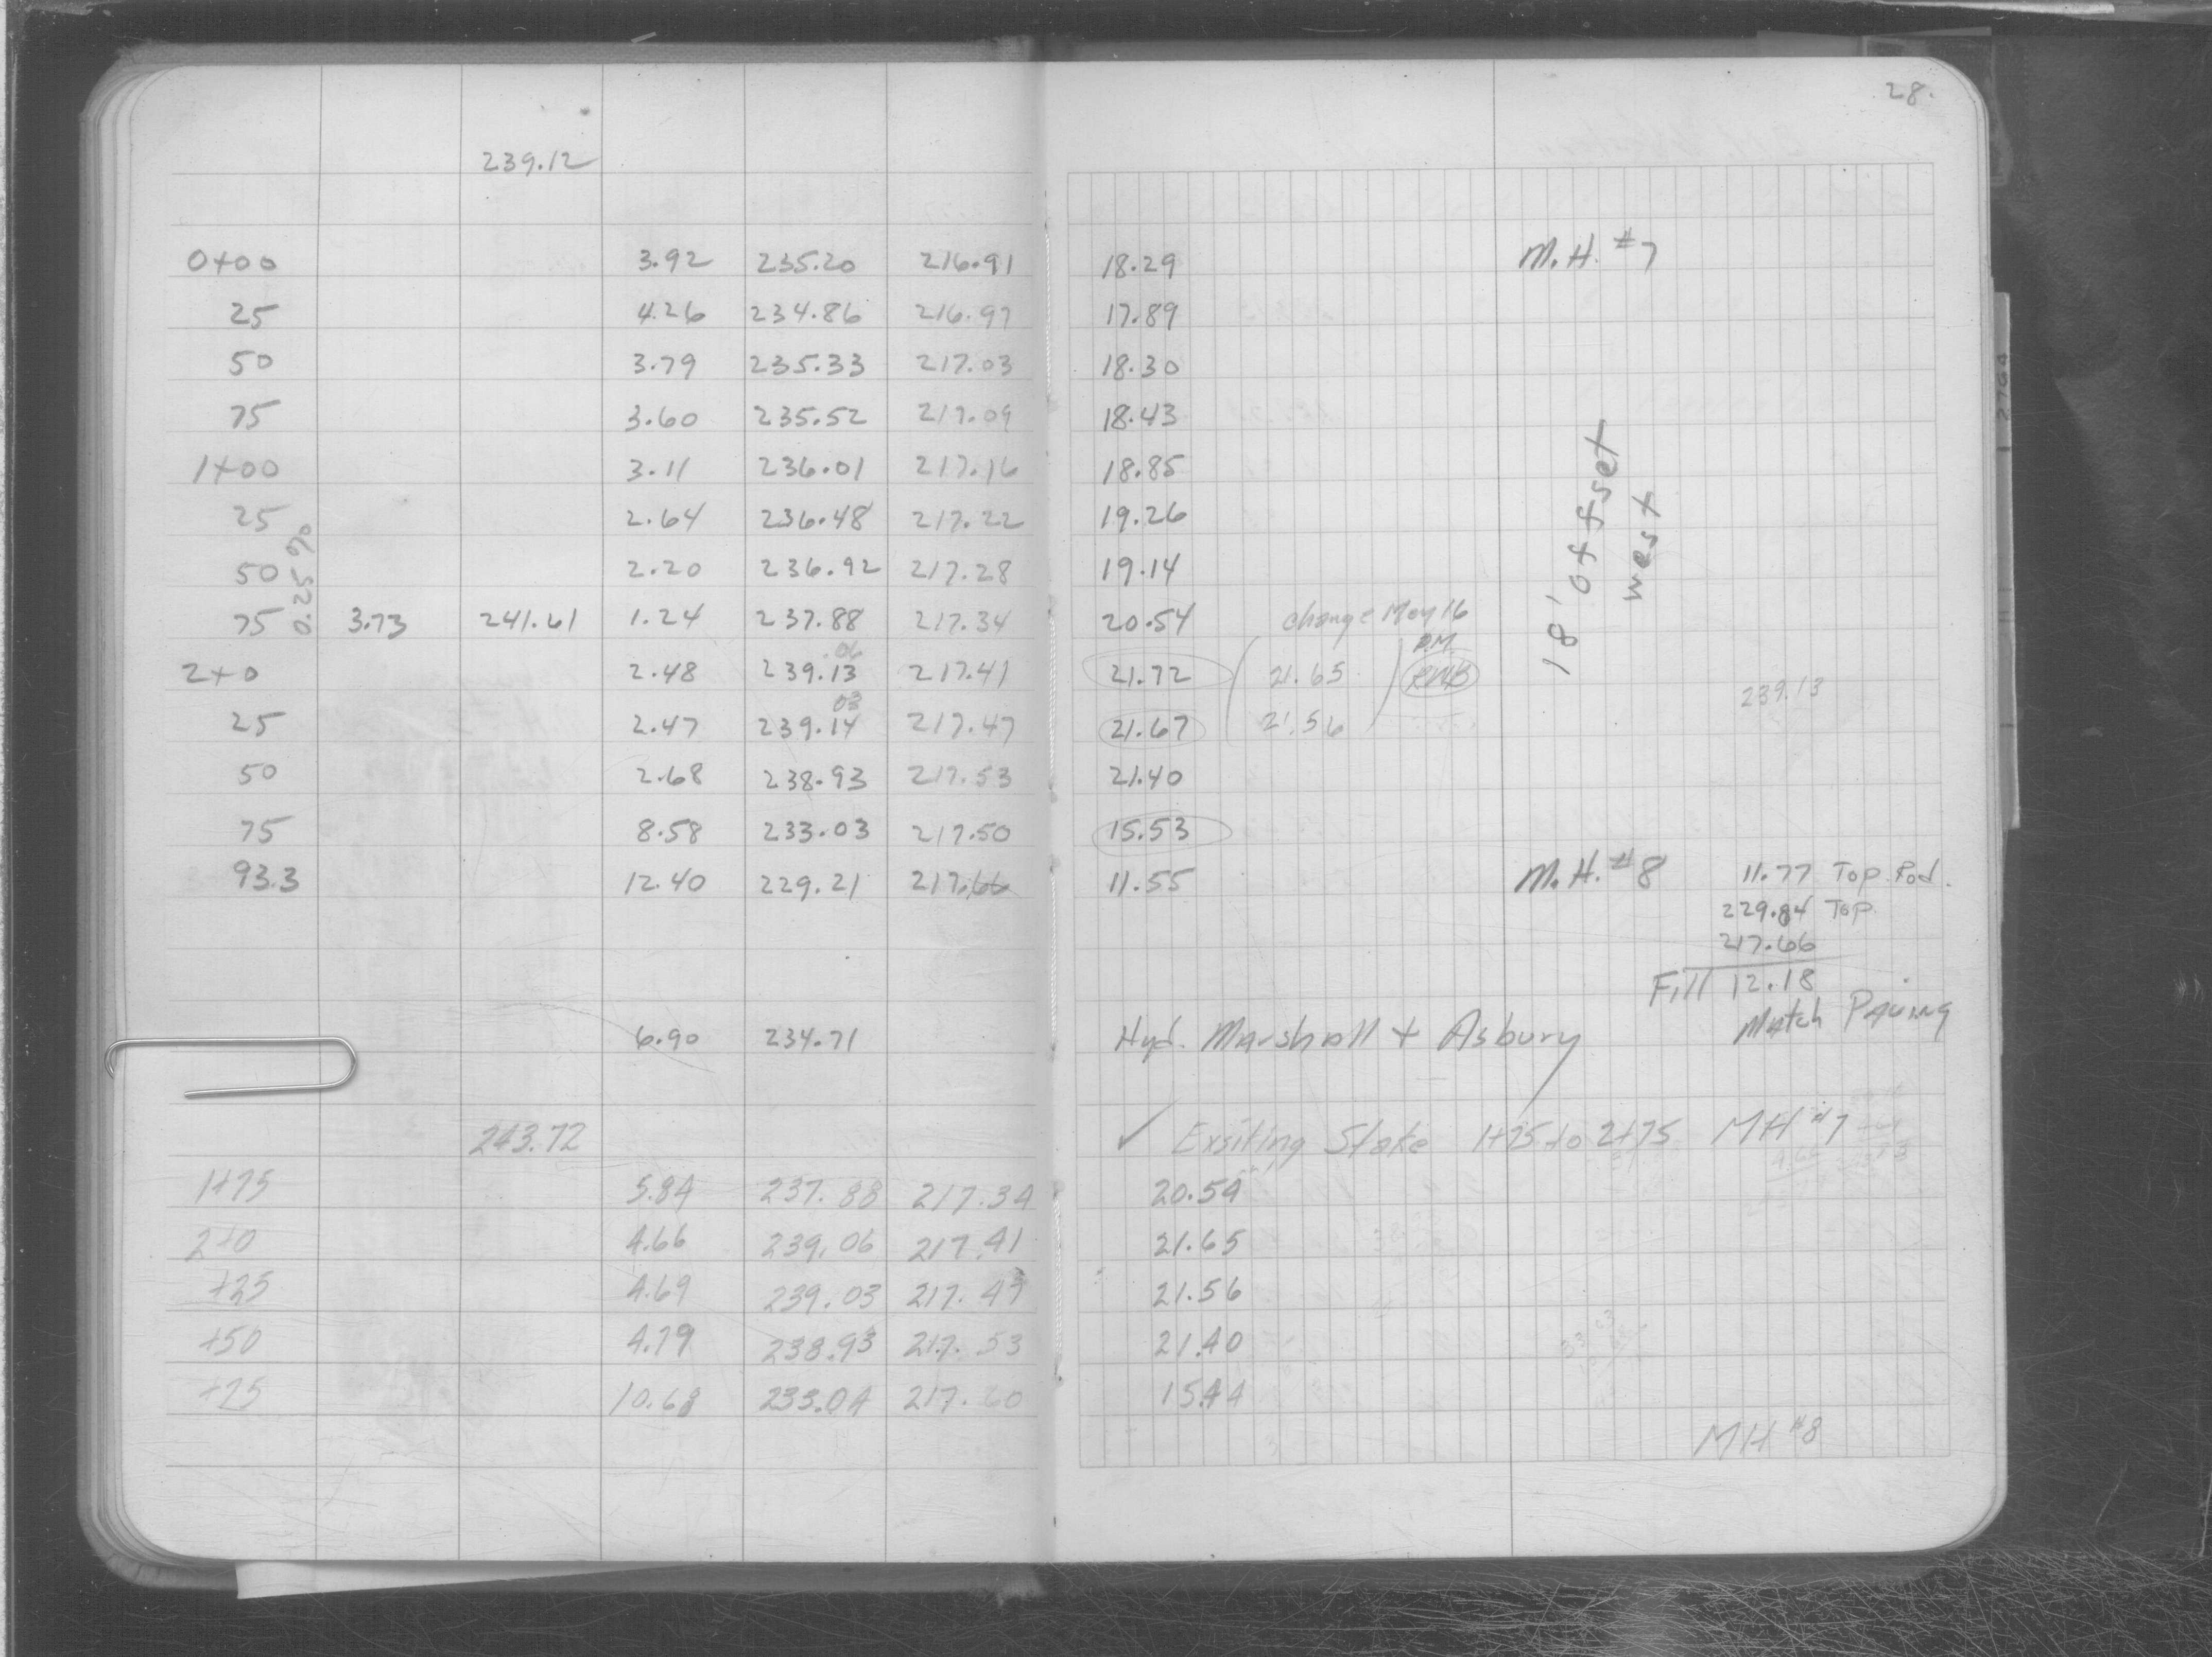 28.
239.12
0+00 3.92 235.20 216.91 18.29 M.H. #7
25 4.26 234.86 216.97 17.89
50 3.79 235.33 217.03 18.30
75 3.60 235.52 217.09 18.43
1+00 3.11 236.01 217.16 18.85
25 2.64 236.48 217.22 19.26
50 2.20 236.92 217.28 19.14
0.25%
18' offset
west
75 3.73 241.61 1.24 237.88 217.34 20.54 change May 16
.06 P.M.
2+0 2.48 239.13 217.41 21.72 21.65 RMB 239.13
03
25 2.47 239.14 217.47 21.67 21.56
50 2.68 238.93 217.53 21.40
75 8.58 233.03 217.50 15.53
93.3 12.40 229.21 217.66 11.55 M.H. #8 11.77 Top Rod.
229.84 Top
217.66
Fill 12.18
Match Paving
6.90 234.71 Hyd. Marshall + Asbury
243.72 ✓ Exsiting Stake 1+75 to 2+75 MH #7
1+75 5.84 237.88 217.34 20.54
2+0 4.66 239.06 217.41 21.65
+25 4.69 239.03 217.47 21.56
+50 4.79 238.93 217.53 21.40
+25 10.68 233.04 217.60 15.44
MH #8